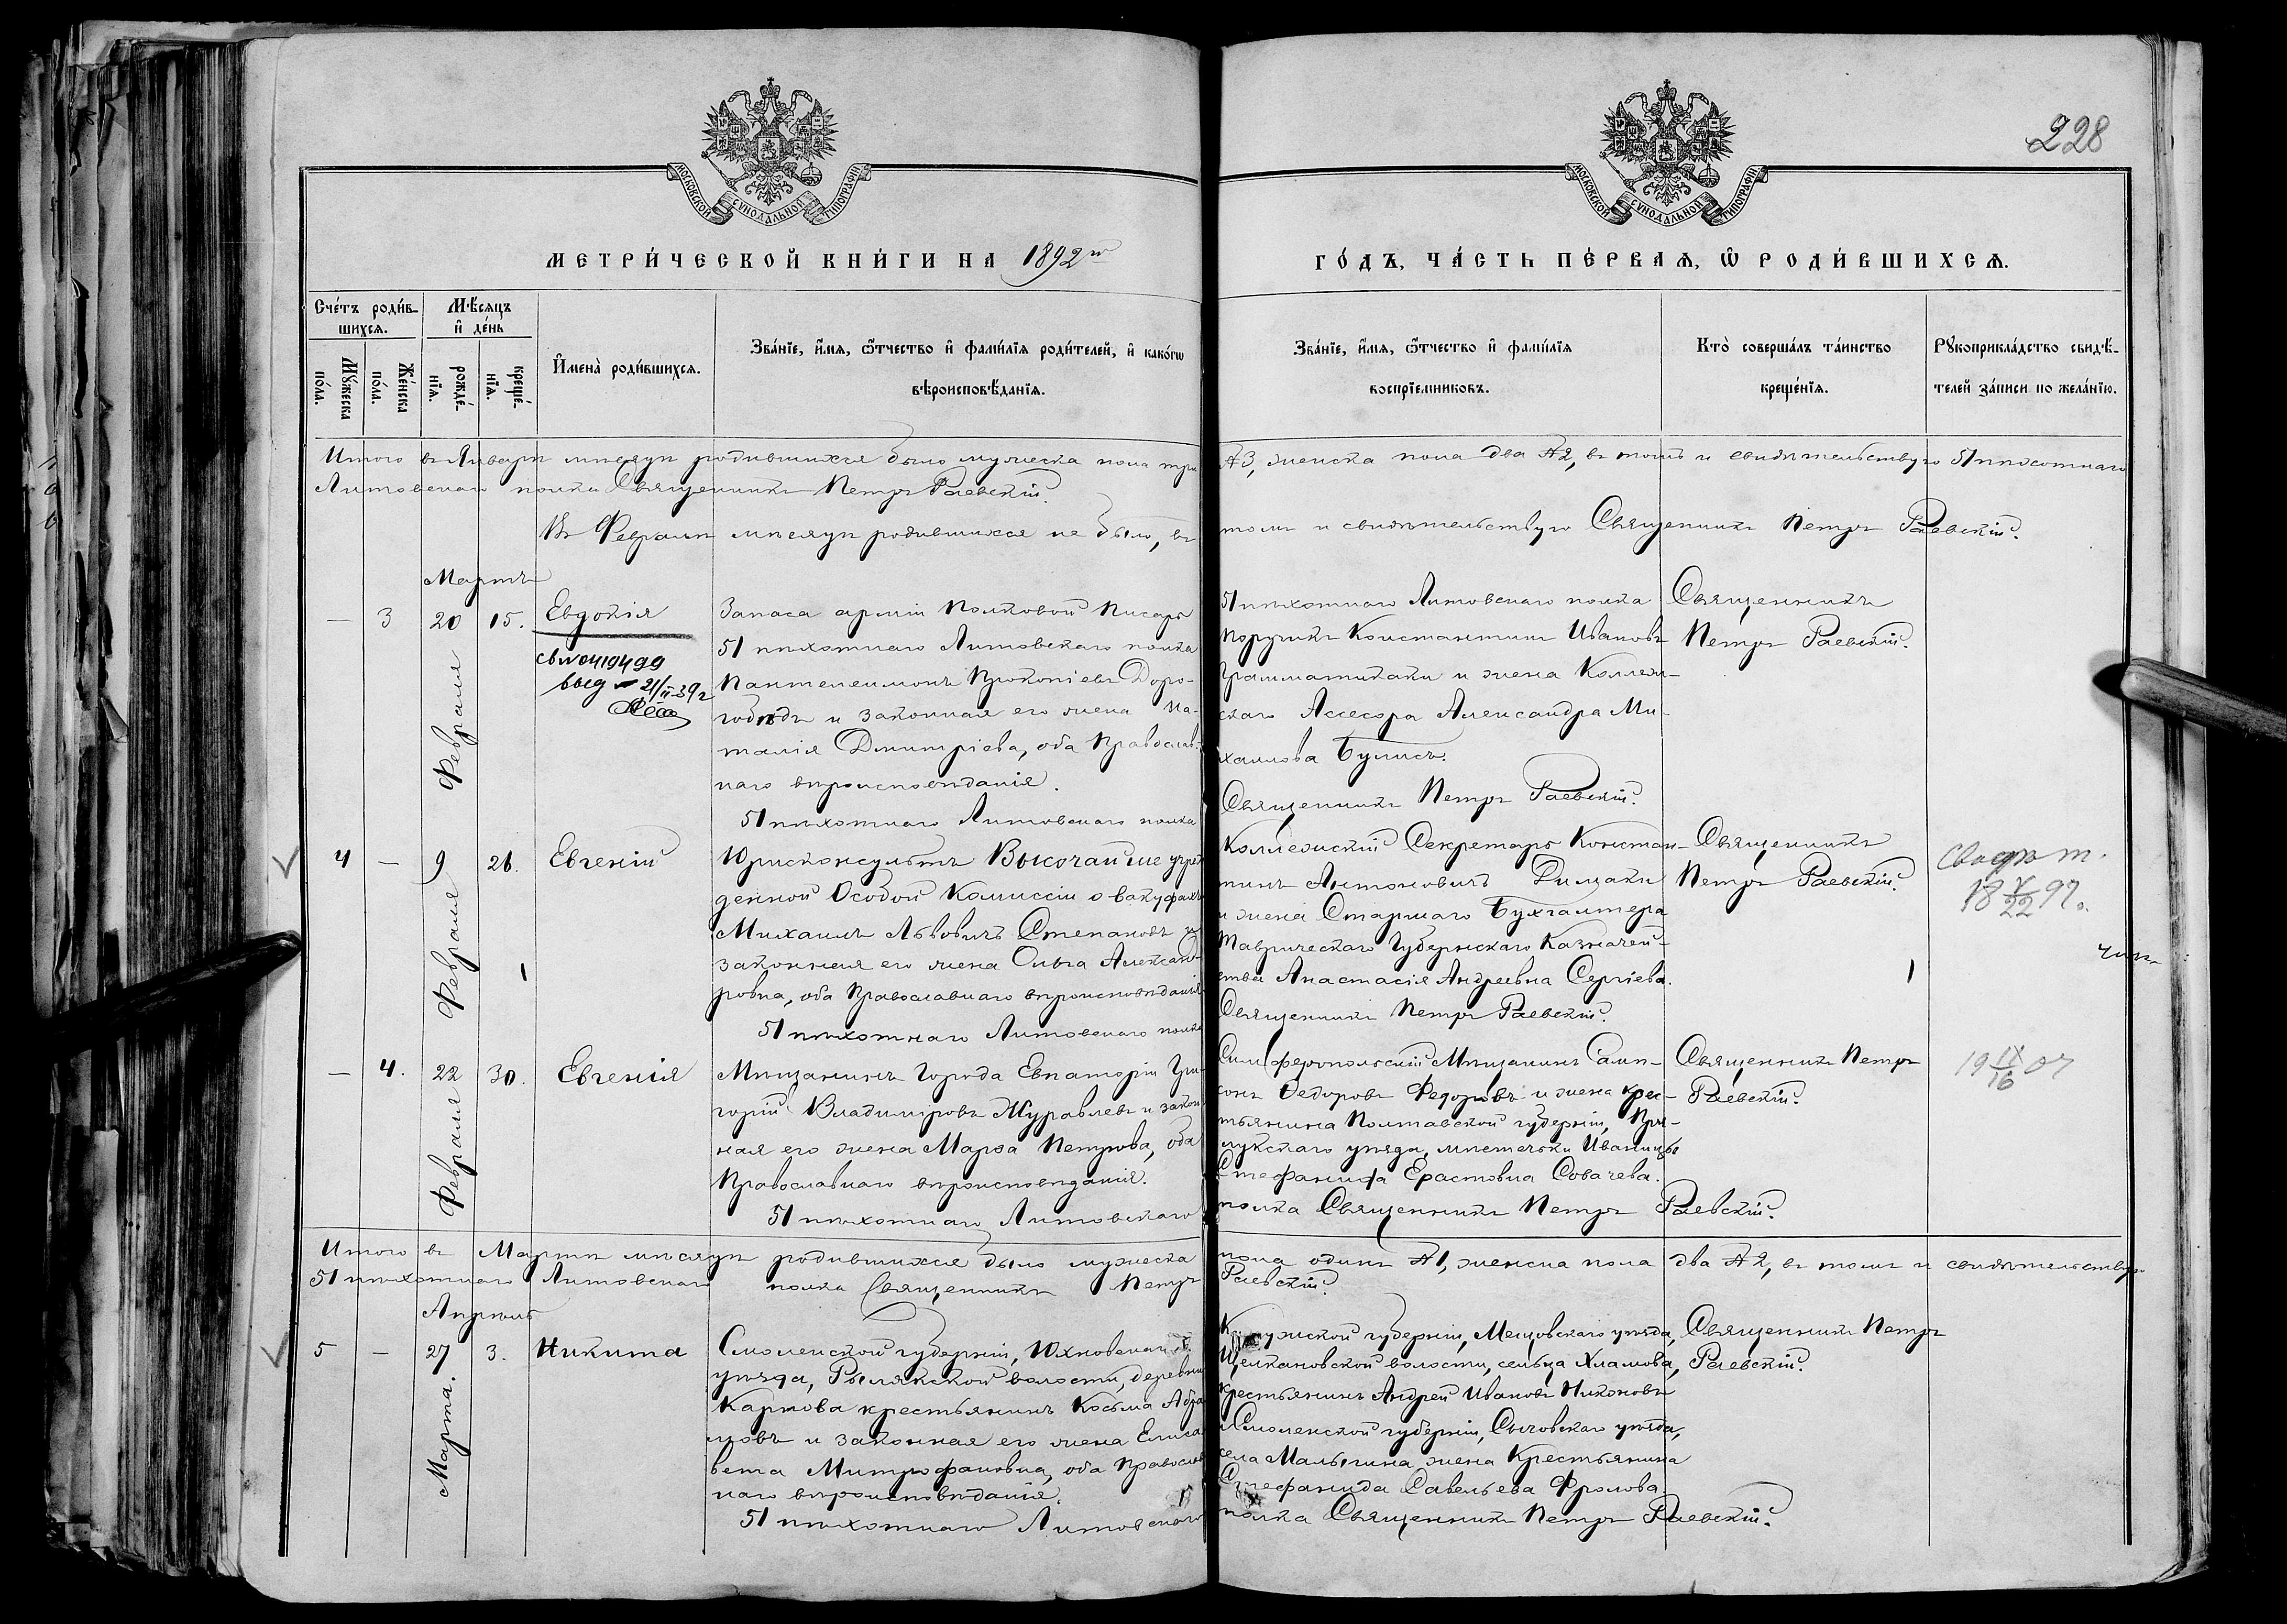 228
МОСКОВСКОЙ СУНОДАЛЬНОЙ ТИПОГРАФІИ
МОСКОВСКОЙ СУНОДАЛЬНОЙ ТИПОГРАФІИ
МЕТРИ́ЧЕСКОЙ КНИ́ГИ НА 1892й
ГО́ДЪ, ЧА́СТЬ ПЕ́РВАѦ, Ѡ РОДИ́ВШИХСѦ.
Сче́тъ роди́вшихсѧ.
Мѹ́жеска по́ла.
Же́нска по́ла.
Мѣ́сѧцъ и҆ де́нь
рожде́нїѧ.
креще́нїѧ.
И҆мена̀ роди́вшихсѧ.
Зва́нїе, и҆́мѧ, ѻ҆́тчество и҆ фами́лїѧ роди́телей, и҆ како́гѡ
вѣроисповѣ́данїѧ.
Зва́нїе, и҆́мѧ, ѻ҆́тчество и҆ фами́лїѧ
воспрїемниковъ.
Кто̀ соверша́лъ та́инство
креще́нїѧ.
Рꙋкоприкла́дство свидѣ́телей за́писи по жела́нїю.
Итого въ Январѣ мѣсяцѣ родившихся было мужеска пола три №3, женска пола два №2, въ томъ и свидѣтельствую 51 пѣхотнаго
Литовскаго полка Священникъ Петръ Раевскій.
Въ Февралѣ мѣсяцѣ родившихся не было, въ томъ и свидѣтельствую Священникъ Петръ Раевскій.
Мартъ
— 3 20 Февраля 15. Евдокія
св №0419499
выд 21/II-39г
Запаса арміи Полковой Писарь
51 пѣхотнаго Литовскаго полка
Пантелеимонъ Прокопіевъ Доро-
гобѣдъ и законная его жена На-
талія Дмитріева, оба Православ-
наго вѣроисповѣданія.
51 пѣхотнаго Литовскаго полка
51 пѣхотнаго Литовскаго полка
поручикъ Константинъ Ивановъ
Грамматикаки и жена Коллеж-
скаго Ассесора Александра Ми-
хаилова Булисъ.
Священникъ Петръ Раевскій.
Священникъ
Петръ Раевскій.
4 — 9 Февраля 26. Евгеній
Юрисконсультъ Высочайше учреж
денной Особой Коммиссіи о вакуфахъ
Михаилъ Львовичъ Степановъ и
законная его жена Ольга Александ
ровна, оба Православнаго вѣроисповѣданія
51 пѣхотнаго Литовскаго полка
Коллежскій Секретарь Констан-
тинъ Антоновичъ
и жена Старшаго Бухгалтера
Таврическаго Губернскаго Казначей-
ства Анастасія Андреевна Сергіева.
Священникъ Петръ Раевскій.
Священникъ
Петръ Раевскій.
18 V/22 97г.
— 4. 22 Февраля 30. Евгенія
Мѣщанинъ Города Евпаторіи Гри-
горій Владиміровъ Журавлевъ и закон
ная его жена Марѳа Петрова, оба
Православнаго вѣроисповѣданія.
51 пѣхотнаго Литовскаго
Симферопольскій Мѣщанинъ Самп-
сонъ Ѳедоровъ Федоровъ и жена крес-
тьянина Полтавской губерніи, При-
лукскаго уѣзда, мѣстечка Иваницы
Стефанида Ерастовна Совачева.
полка Священникъ Петръ Раевскій.
Священникъ Петръ
Раевскій.
19 IX/16 07
Итого въ Мартѣ мѣсяцѣ родившихся было мужеска пола одинъ №1, женска пола два №2, въ томъ и свидѣтельствую
51 пѣхотнаго Литовскаго полка Священникъ Петръ Раевскій.
Апрѣль
5 — 27 Марта. 3. Никита
Смоленской губерніи, Юхновскаго
уѣзда, Рылякской волости, деревни
Карпова крестьянинъ Косьма Абра
мовъ и законная его жена Елиса
вета Митрофановна, оба Православ
наго вѣроисповѣданія.
51 пѣхотнаго Литовскаго
Калужской губерніи, Мещовскаго уѣзда,
Щелкановской волости, сельца Хламова,
крестьянинъ Андрей Ивановъ Никоновъ
и Смоленской губерніи, Сычовскаго уѣзда,
села Малыгина жена Крестьянина
Стефанида Савельева Фролова
полка Священникъ Петръ Раевскій.
Священникъ Петръ
Раевскій.